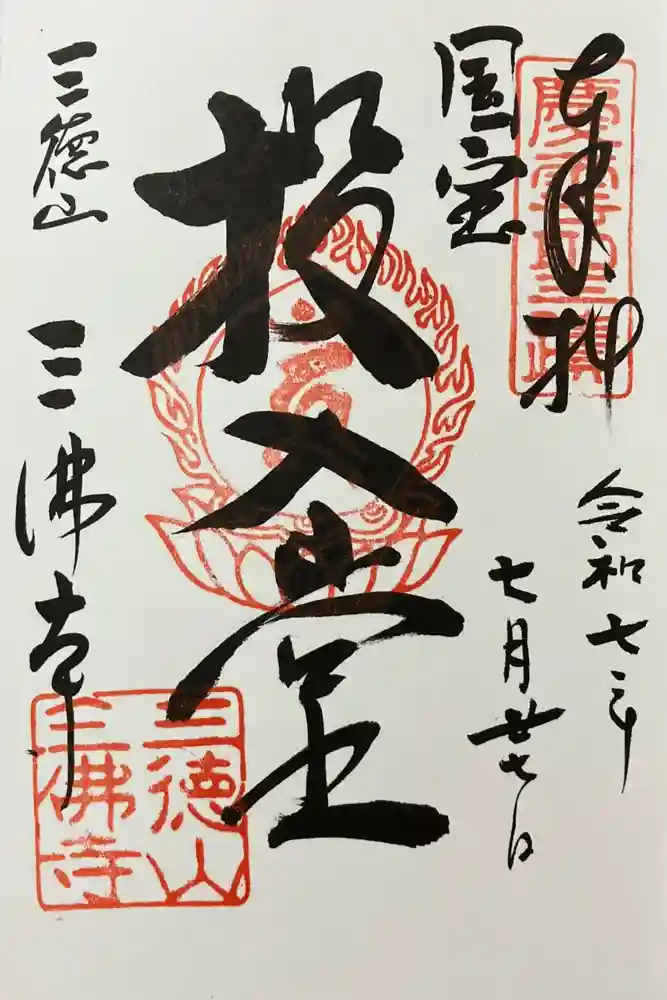 奉拝
国宝
令和七年
七月廿七日
投入堂
三徳山
三佛寺
慶雲三年
三徳山
三佛寺